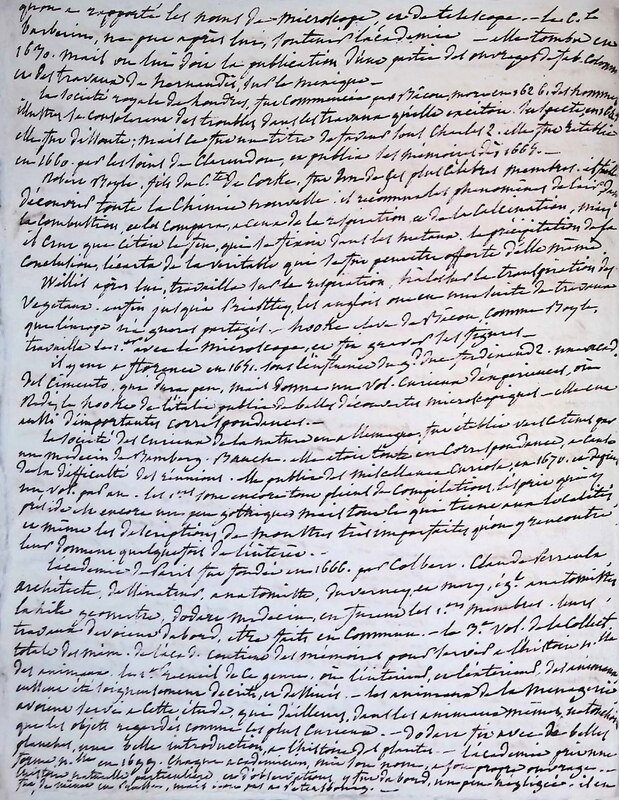 qu'on a rapporté les noms de microscope, et de telescope. – le C. te
Barberini, ne put après lui, soutenir l'académie – elle tomba en
1630. mais on lui doit la publication d'une partie des ouvrages de fab. Colonna
et des travaux de hernandès, sur le mexique –
la société royale de Londres, fut commencée par Bacon, mort en 1626. des hommes
illustres se consolerent des troubles dans les travaux qu'elle excitoit. Suspecte, en
elle fut dissoute; mais ce fut un titre de faveur sous Charles 2. elle fut rétablie
en 1660. par les soins de Clarendon, et publia ses memoires dès 1665. –
Robert Boyle, fils du C. te de Corke, fut un de ses plus célèbres membres.
découvrit toute la Chimie nouvelle. il reconnut les phenomenes de l'air dans
la combustion, et les compara, a ceux de la respiration, et de la calcination, mais
il crut que c'étoit le feu, qui se fixoit dans les metaux. la précipitation de sa
conclusion, l'écarta de la veritable qui se fut peut être offerte d'elle même
Willis après lui, travailla sur la respiration, hales sur la transpiration des
vegetaux. enfin jusqu'a Priestley, les anglois ont eu une suite de travaux
que l'europe n'a gueres partagés. – hooke eleve de Bacon, comme Boyle,
travailla le 1. er avec le microscope, et fit graver ses figures –
il y eut a florence en 1651. sous l'influence du g. d duc ferdinand 2. une acad.
del Cimento, qui dura peu, mais donna un vol. curieux d'expériences, où
Redi, le hooke de l'italie publia de belles découvertes microscopiques – elle eut
aussi d'importantes correspondances. –
la société des Curieux de la nature en allemagne, fut établie vers ce tems par
un médecin de Bamberg. Bausch. elle étoit toute en correspondance, a cause
de la difficulté des réunions. elle publia des miscellanea Curiosa, en 1670. et depuis
un vol. par an. les 1. ers sont encore tout pleins de compilations, l'esprit qui y
preside est encore un peu gothique mais tout ce qui tient aux localités
et même les descriptions de monstres très imparfaites qu'on y rencontre
leur donnent quelquefois de l'intérêt. –
L'académie de Paris fut fondée en 1666. par Colbert. Claude Perrault
architecte, de l'menateur, anatomiste, duverney, et mery, anatomistes
lahire geometre, dodart medecin, en furent les 1. ers membres. leurs
travaux devoient d'abord, être faits en commun. – le 3. e vol. de la collect.
totale des mém. de l'acad. contient des mémoires pour servir a l'histoire n. lle
des animaux. le 1. er recueil de ce genre, où l'intérieur, et l'extérieur, des animaux
eussent été soigneusement decrits, et dessinés. – les animaux de la menagerie
avoient servi a cette étude, qui d'ailleurs, dans les animaux mêmes, ne touchoit
que les objets regardés comme les plus curieux. – dodart fit avec de belles
planches, une belle introduction, a l'histoire des plantes – l'académie prit une
forme n. lle en 1699. chaque académicien, mit son nom, a son propre ouvrage. –
l'histoire naturelle particulière, et d'observations, y fut d'abord, un peu négligée. il en
fut de même en mais non pas a Petersbourg. –